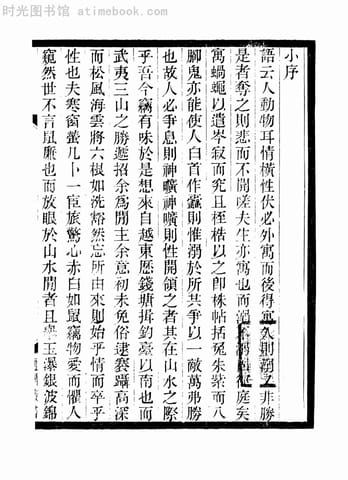 时光图书馆 atimebook.com
小序
語云人動物耳情橫性伏必外寓而後得寓久則溺又非勝
是者奪之則悲而不開嗟夫生亦寓也而溺
庭矣
寓蝸蠅以遣岑寂而究且桎梏以之卽株帖括兔朱紫而八
腳鬼亦能使人白首作蠧則惟溺於所其爭以一敵萬弗勝
也故人必爭息則神曠神曠則性開領之者其在山水之際
乎吾今竊有味於是想來自越東歷錢塘揖釣臺以南也而
武夷三山之勝遞招余爲閒主余意初未免俗逮褰躡高深
而松風海雲將六根如洗豁然忘所由來則始乎情而卒乎
性也夫寒窗螢几卜一宦旅驚心赤白如鼠竊物愛而懼人
窺然世不言鼠廉也而放眼於山水閒者且拳玉瀑銀波錦